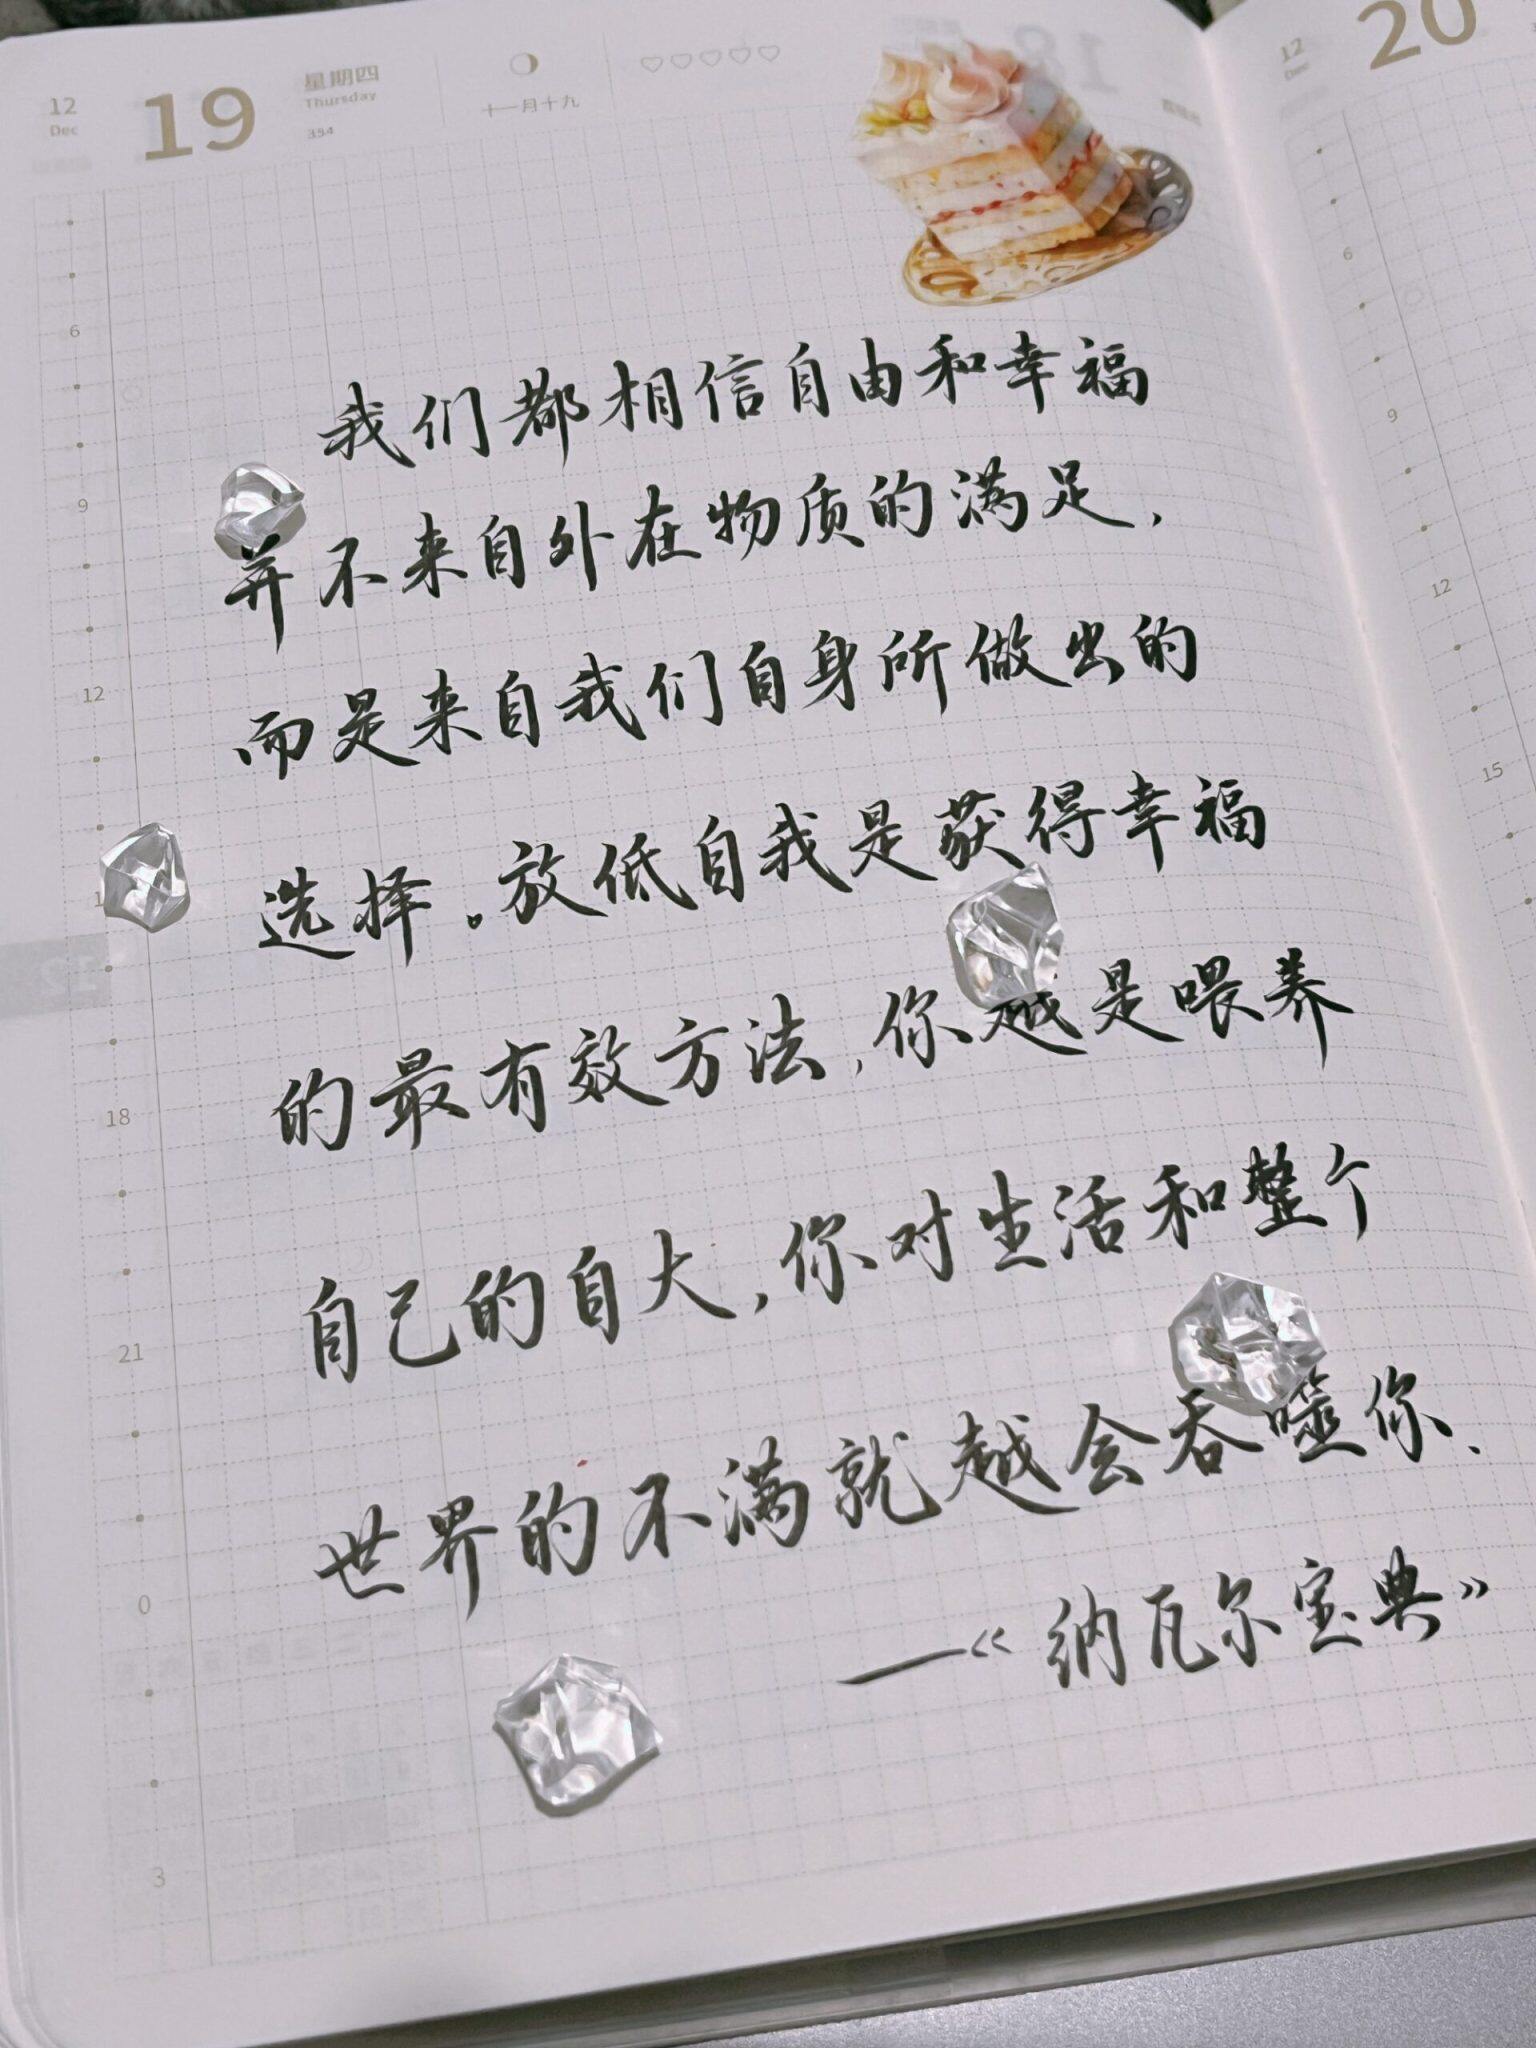 12
Dec
19
星期四
Thursday
354
十一月十九
12
Dec
20
我们都相信自由和幸福
并不来自外在物质的满足,
而是来自我们自身所做出的
选择。放低自我是获得幸福
的最有效方法,你越是喂养
自己的自大,你对生活和整个
世界的不满就越会吞噬你、
—《纳瓦尔宝典》
6
9
12
18
21
0
3
6
9
12
15